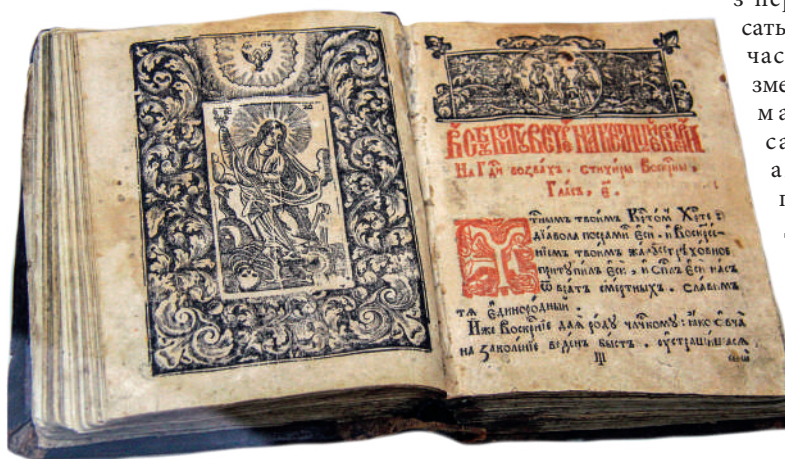 з пер
сать
час
зме
ма
са
На Гдⷭ҇и возвахъ . стихиры Воскрⷭ҇ны ,
Гласъ , є҃ .
тнымъ твоимъ Крⷭ҇томъ Хрⷭ҇те
дїавола посрами єси . и Воскресе-
нїемъ твоимъ жало грѣховное
притупилъ єси , и сп҃слъ єси насъ
ѿ вратъ смертныхъ . славимъ
тѧ єдинородный .
Иже Воскрⷭ҇нїе даѧ роду члч҃кому : ꙗко ѻвча
на заколѣнїе веденъ бысть . оустрашишасѧ